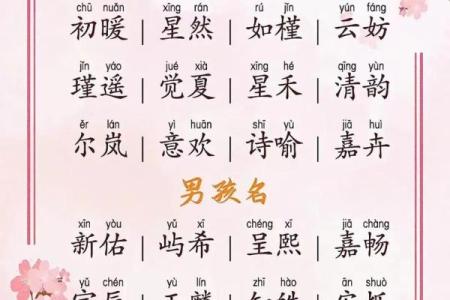 chū nuǎn xīng rán rú jǐn yún fáng
初暖 | 星然 | 如槿 | 云妨
jǐn yáo jué xià xīng hé qīng yùn
瑾遥 | 觉夏 | 星禾 | 清韵
ěr lán yì huān shī yù jiā huì
尔岚 | 意欢 | 诗喻 | 嘉卉
男孩名
xīn yòu yǔ xī chéng xī jiā chàng
新佑 | 屿希 | 呈熙 | 嘉畅
yǔ chén yù lín zhī hào ān shuò